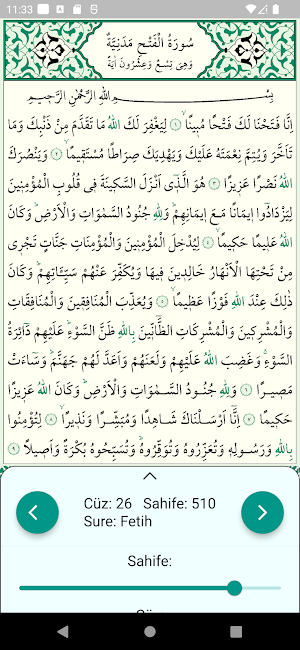 11:33
سُورَةُ الْفَتْحِ مَدَنِيَّةٌ
وَهِيَ تِسْعٌ وَعِشْرُونَ اٰيَةً
بِسْــــــمِ اللهِ الرَّحْمٰنِ الرَّحِيمِ
اِنَّا فَتَحْنَا لَكَ فَتْحًا مُبِينًاۙ ﴿١﴾ لِيَغْفِرَ لَكَ اللهُ مَا تَقَدَّمَ مِنْ ذَنْبِكَ وَمَا
تَاَخَّرَ وَيُتِمَّ نِعْمَتَهُ عَلَيْكَ وَيَهْدِيَكَ صِرَاطًا مُسْتَقِيمًاۙ ﴿٢﴾ وَيَنْصُرَكَ
اللهُ نَصْرًا عَزِيزًا ﴿٣﴾ هُوَ الَّذِٓي اَنْزَلَ السَّكِينَةَ فِي قُلُوبِ الْمُؤْمِنِينَ
لِيَزْدَادُٓوا اِيمَانًا مَعَ اِيمَانِهِمْۜ وَلِلّٰهِ جُنُودُ السَّمٰوَاتِ وَالْاَرْضِۜ وَكَانَ
اللهُ عَلِيمًا حَكِيمًاۙ ﴿٤﴾ لِيُدْخِلَ الْمُؤْمِنِينَ وَالْمُؤْمِنَاتِ جَنَّاتٍ تَجْرِي
مِنْ تَحْتِهَا الْاَنْهَارُ خَالِدِينَ فِيهَا وَيُكَفِّرَ عَنْهُمْ سَيِّـَٔاتِهِمْۜ وَكَانَ
ذٰلِكَ عِنْدَ اللهِ فَوْزًا عَظِيمًاۙ ﴿٥﴾ وَيُعَذِّبَ الْمُنَافِقِينَ وَالْمُنَافِقَاتِ
وَالْمُشْرِكِينَ وَالْمُشْرِكَاتِ الظَّٓانِّينَ بِاللهِ ظَنَّ السَّوْءِۜ عَلَيْهِمْ دَٓائِرَةُ
السَّوْءِۚ وَغَضِبَ اللهُ عَلَيْهِمْ وَلَعَنَهُمْ وَاَعَدَّ لَهُمْ جَهَنَّمَۜ وَسَٓاءَتْ
مَصِيرًا ﴿٦﴾ وَلِلّٰهِ جُنُودُ السَّمٰوَاتِ وَالْاَرْضِۜ وَكَانَ اللهُ عَزِيزًا
حَكِيمًا ﴿٧﴾ اِنَّٓا اَرْسَلْنَاكَ شَاهِدًا وَمُبَشِّرًا وَنَذِيرًاۙ ﴿٨﴾ لِتُؤْمِنُوا
بِاللهِ وَرَسُولِهِ وَتُعَزِّرُوهُ وَتُوَقِّرُوهُۜ وَتُسَبِّحُوهُ بُكْرَةً وَاَصِيلًا ﴿٩﴾
Cüz: 26 Sahife: 510
Sure: Fetih
Sahife: